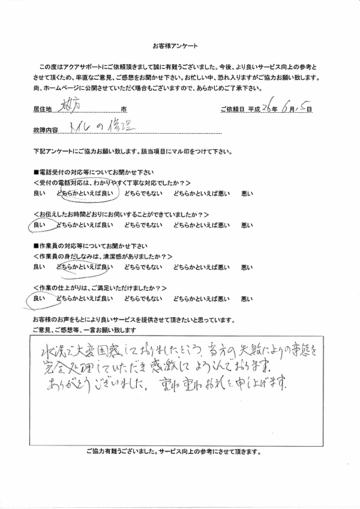 お客様アンケート
この度はアクアサポートにご依頼頂きまして誠に有難うございました。今後、より良いサービス向上の参考と
させて頂くため、率直なご意見、ご感想をお聞かせ下さい。お忙しい中、恐れ入りますがご協力お願い致します。
尚、ホームページに公開させていただく場合もございますので、あらかじめご了承下さい。
居住地 枚方 市 ご依頼日 平成 26年 6月 15日
故障内容 トイレの修理
下記アンケートにご協力お願い致します。該当項目にマル印をつけて下さい。
■電話受付の対応等についてお聞かせ下さい
<受付の電話対応は、わかりやすく丁寧な対応でしたか?>
良い どちらかといえば良い どちらでもない どちらかといえば悪い 悪い
<お伝えしたお時間どおりにお伺いすることができていましたか?>
良い どちらかといえば良い どちらでもない どちらかといえば悪い 悪い
■作業員の対応等についてお聞かせ下さい
<作業員の身だしなみは、清潔感がありましたか?>
良い どちらかといえば良い どちらでもない どちらかといえば悪い 悪い
<作業の仕上がりは、ご満足いただけましたか?>
良い どちらかといえば良い どちらでもない どちらかといえば悪い 悪い
お客様のお声をもとにより良いサービスを提供させて頂きたいと思っています。
ご意見、ご感想等、一言お願い致します
水洩で大変困惑しておりましたところ、当方の失敗によりの事態を
完全処理していただき感激してよろこんでおります。
ありがとうございました。重ね重ねお礼を申し上げます。
ご協力有難うございました。サービス向上の参考にさせて頂きます。